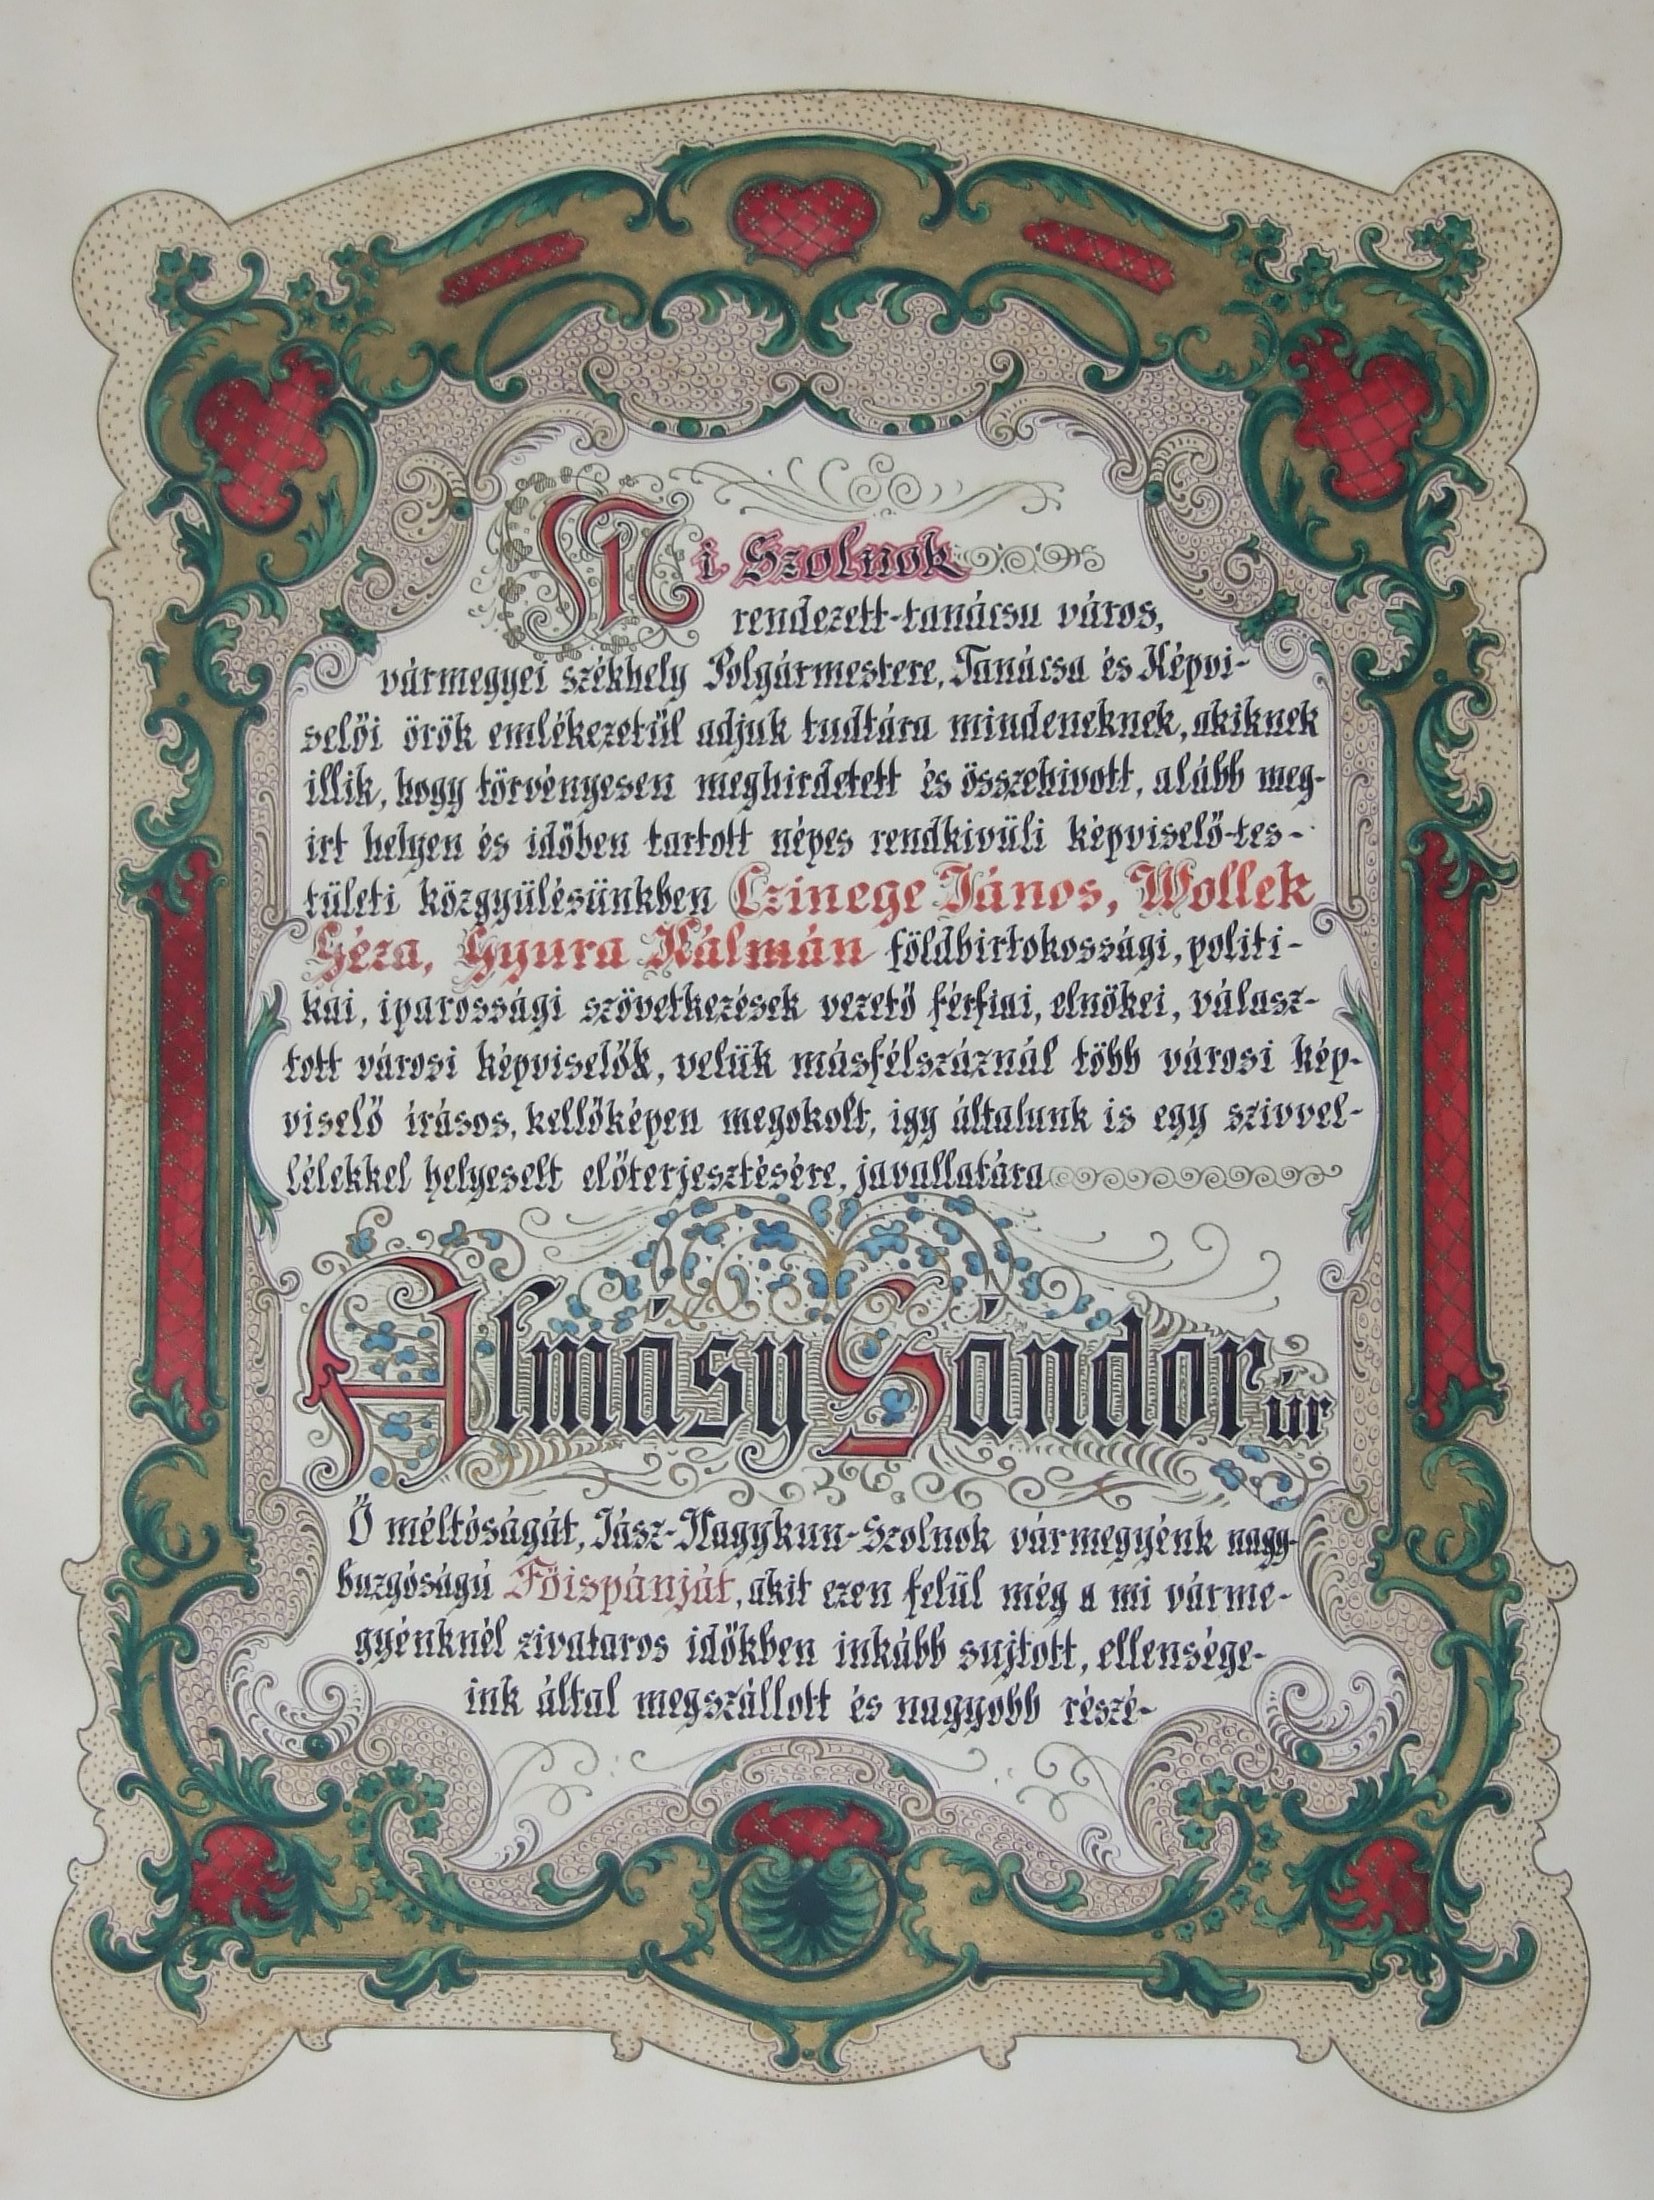 Mi Szolnok
rendezett-tanácsu város,
vármegyei székhely Polgármestere, Tanácsa és Képvi-
selői örök emlékezetül adjuk tudtára mindeneknek, akiknek
illik, hogy törvényesen meghirdetett és összehivott, alább meg-
irt helyen és időben tartott népes rendkivüli képviselő-tes-
tületi közgyülésünkben Czinege János, Wollek
Géza, Gyura Kálmán földbirtokossági, politi-
kai, iparossági szövetkezések vezető férfiai, elnökei, válasz-
tott városi képviselők, velük másfélszáznál több városi kép-
viselő írásos, kellőképen megokolt, igy általunk is egy szivvel-
lélekkel helyeselt előterjesztésére, javallatára
Almásy Sándor úr
Ő méltóságát, Jász-Nagykun-Szolnok vármegyénk nagy-
buzgóságú Főispánját, akit ezen felül még a mi várme-
gyénknél zivataros időkben inkább sujtott, ellensége-
ink által megszállott és nagyobb részé-